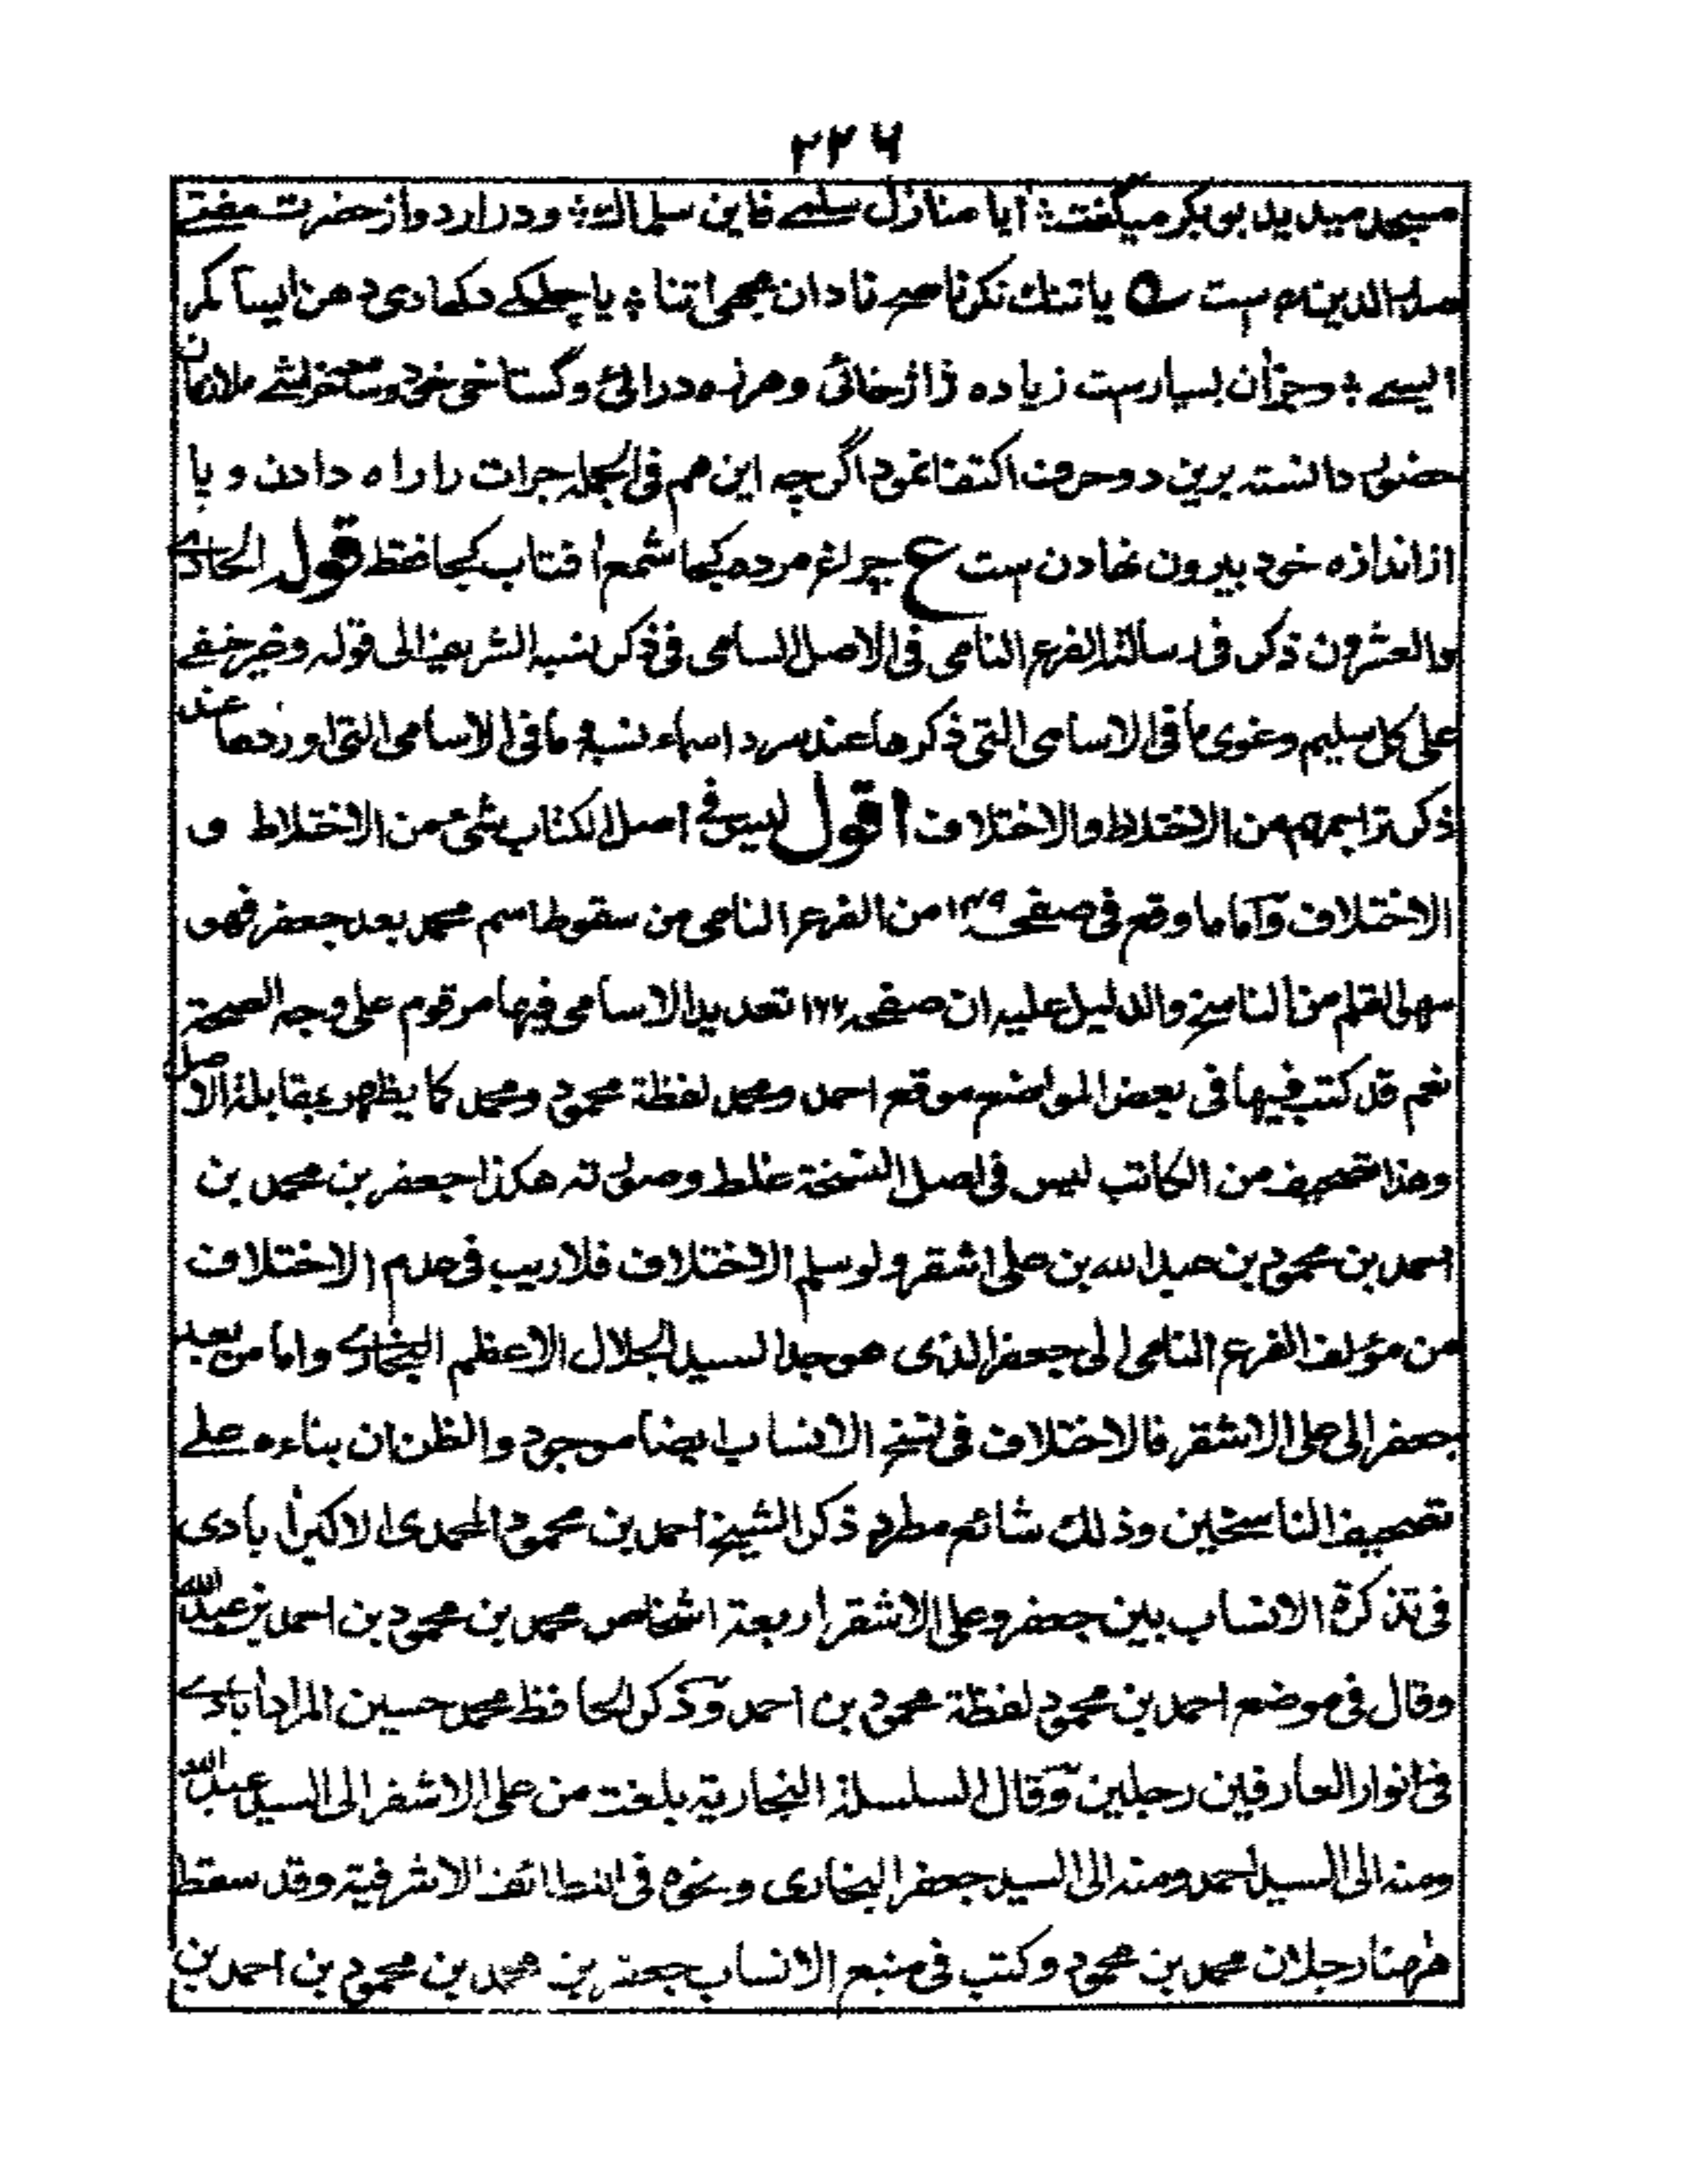 ۲۲۶
مسجد میدید بو بکر میگفت ؛ ایا منازل سلمے فاین سلماك ؛ ودر اردو از حضرت مفتے
صدر الدین ست ؎ یا تنك نکر ناصح نادان مجھے اتنا ؛ یا چلکے دکھا دی دهن ایسا کمر
ایسے ؛ وجزان بسیارست زیاده ژاژخائی وهرزه درائی وگستاخی خود
حضور دانسته برین دو حرف اکتفا نمود اگرچه این هم فی الجمله جرات را راه دادن و پا
از اندازه خود بیرون نهادن ست ع چراغ مرده کجا شمع افتاب کجا فقط قوله الحادے
والعشرون ذكر فى رسالته الفرع النامى فى الاصل السامى فى ذكر نسبه الشريف الى قوله وغير خفے
على كل سليم وغوى ما فى الاسامى التى ذكرها عند سرد اسماء نسبه وما فى الاسامى التى اوردها عند
ذكر تراجمهم من الاختلاط والاختلاف اقول ليس فے اصل الكتاب شئ من الاختلاط و
الاختلاف وآما ما وقع فى صفحه من الفرع النامى من سقوط اسم محمد بعد جعفر فهو
سهو القلم من الناسخ والدليل عليه ان صفحه تعديد الاسامى فيها مرقوم على وجه الصحة
نعم قد كتب فيها فى بعض المواضع موقع احمد ومحمد لفظة محمود ومحمد كما يظهر بمقابلة الاصل
وهذا تصحيف من الكاتب ليس فى اصل النسخة غلط وصورته هكذا جعفر بن محمد بن
احمد بن محمود بن عبد الله بن على اشقر ولو سلم الاختلاف فلا ريب فى عدم الاختلاف
من مؤلف الفرع النامى الى جعفر الذى هو جد السيد الجلال الاعظم البخارے واما من بعد
جعفر الى على الاشقر فالاختلاف فى نسخ الانساب ايضا موجود والظن ان بناءه علے
تصحيف الناسخين وذلك شائع مطرد ذكر الشيخ احمد بن محمود المحمدى الاكبرأبادى
فى تذكرة الانساب بين جعفر وعلى الاشقر اربعة اشخاص محمد بن محمود بن احمد بن عبد الله
وقال فى موضع احمد بن محمود لفظة محمود بن احمد وذكر الحافظ محمد حسين المرادأبادے
فى انوار العارفين رجلين وقال السلسلة البخارية بلغت من على الاشقر الى السيد عبد الله
ومنه الى السيد احمد ومنه الى السيد جعفر البخارى ونحوه فى اللطائف الاشرفية وقد سقط
ههنا رجلان محمد بن محمود وكتب فى منبع الانساب جعفر بن محمد بن محمود بن احمد بن